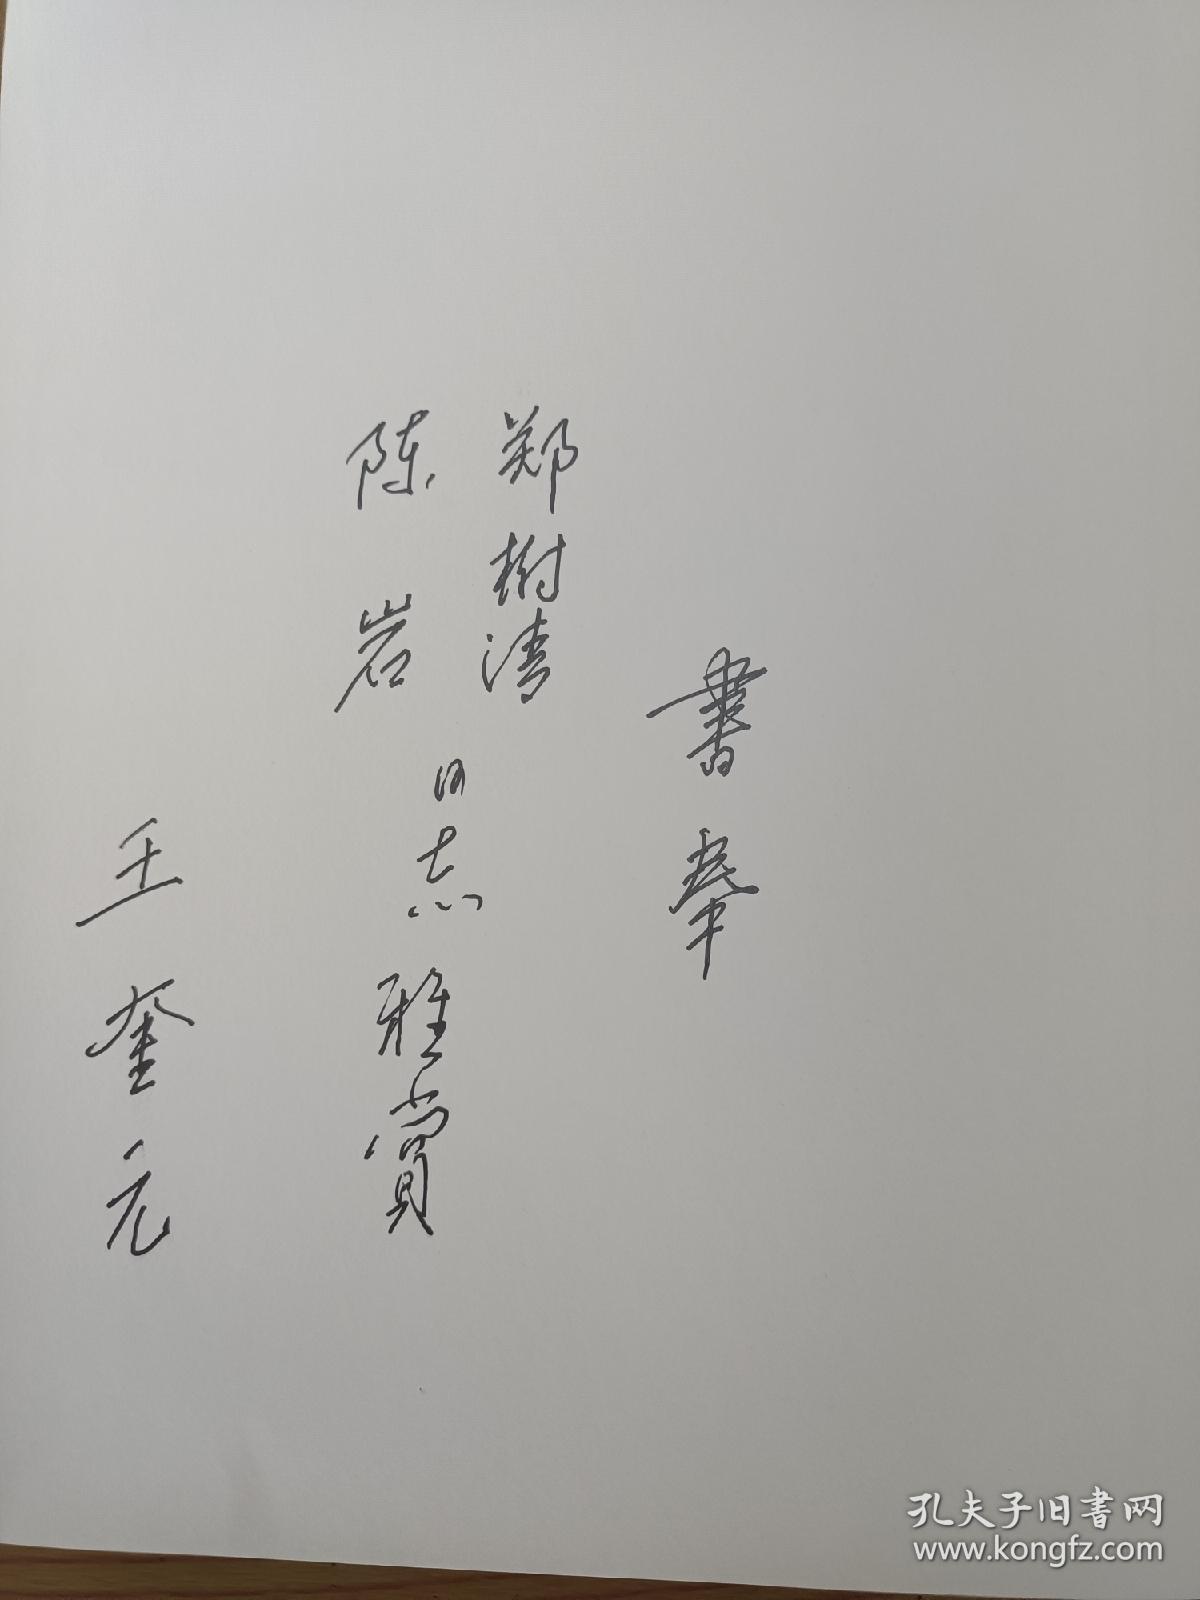 書奉
郑树清
陈岩
同志
雅賞
王奎元
孔夫子旧书网
www.kongfz.com